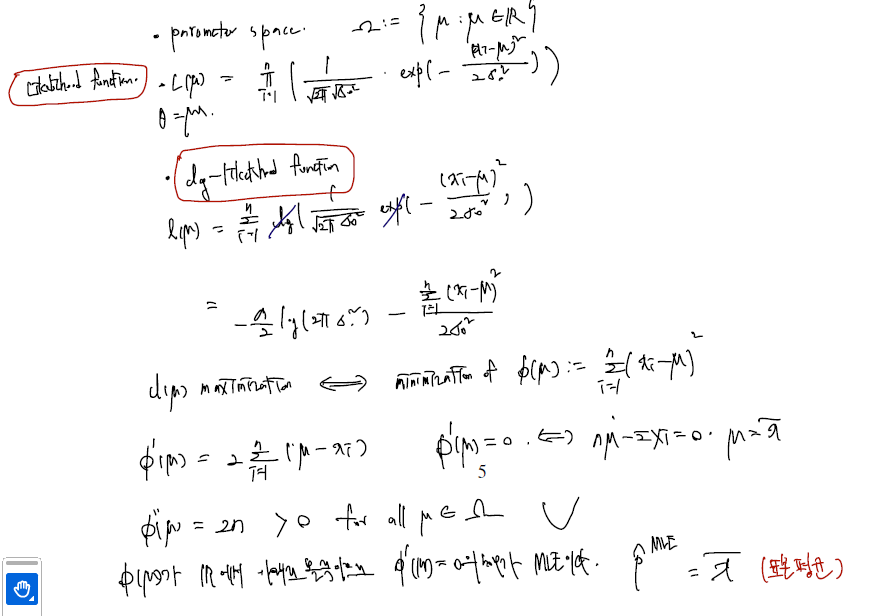 · parameter space. Ω := { μ : μ ∈ ℝ }
Likelihood function. · L(μ) = ∏_{i=1}^{n} ( 1/(√2π √σ₀²) · exp( - (xi-μ)²/(2σ₀²) ) )
θ = μ.
· log-likelihood function
l(μ) = Σ_{i=1}^{n} log( 1/√(2πσ₀²) exp( - (xi-μ)²/(2σ₀²) ) )
= -n/2 log(2πσ₀²) - Σ_{i=1}^{n} (xi-μ)²/(2σ₀²)
l(μ) maximization ⟺ minimization of φ(μ) := Σ_{i=1}^{n} (xi-μ)²
φ'(μ) = 2 Σ_{i=1}^{n} (μ-xi) φ'(μ) = 0 . ⟺ nμ - Σxi = 0 . μ = x̄
5
φ''(μ = 2n > 0 for all μ ∈ Ω ∨
φ(μ)가 ℝ에서 φ'(μ) = 0 MLE 이다. μ̂^MLE = x̄ (표본평균)